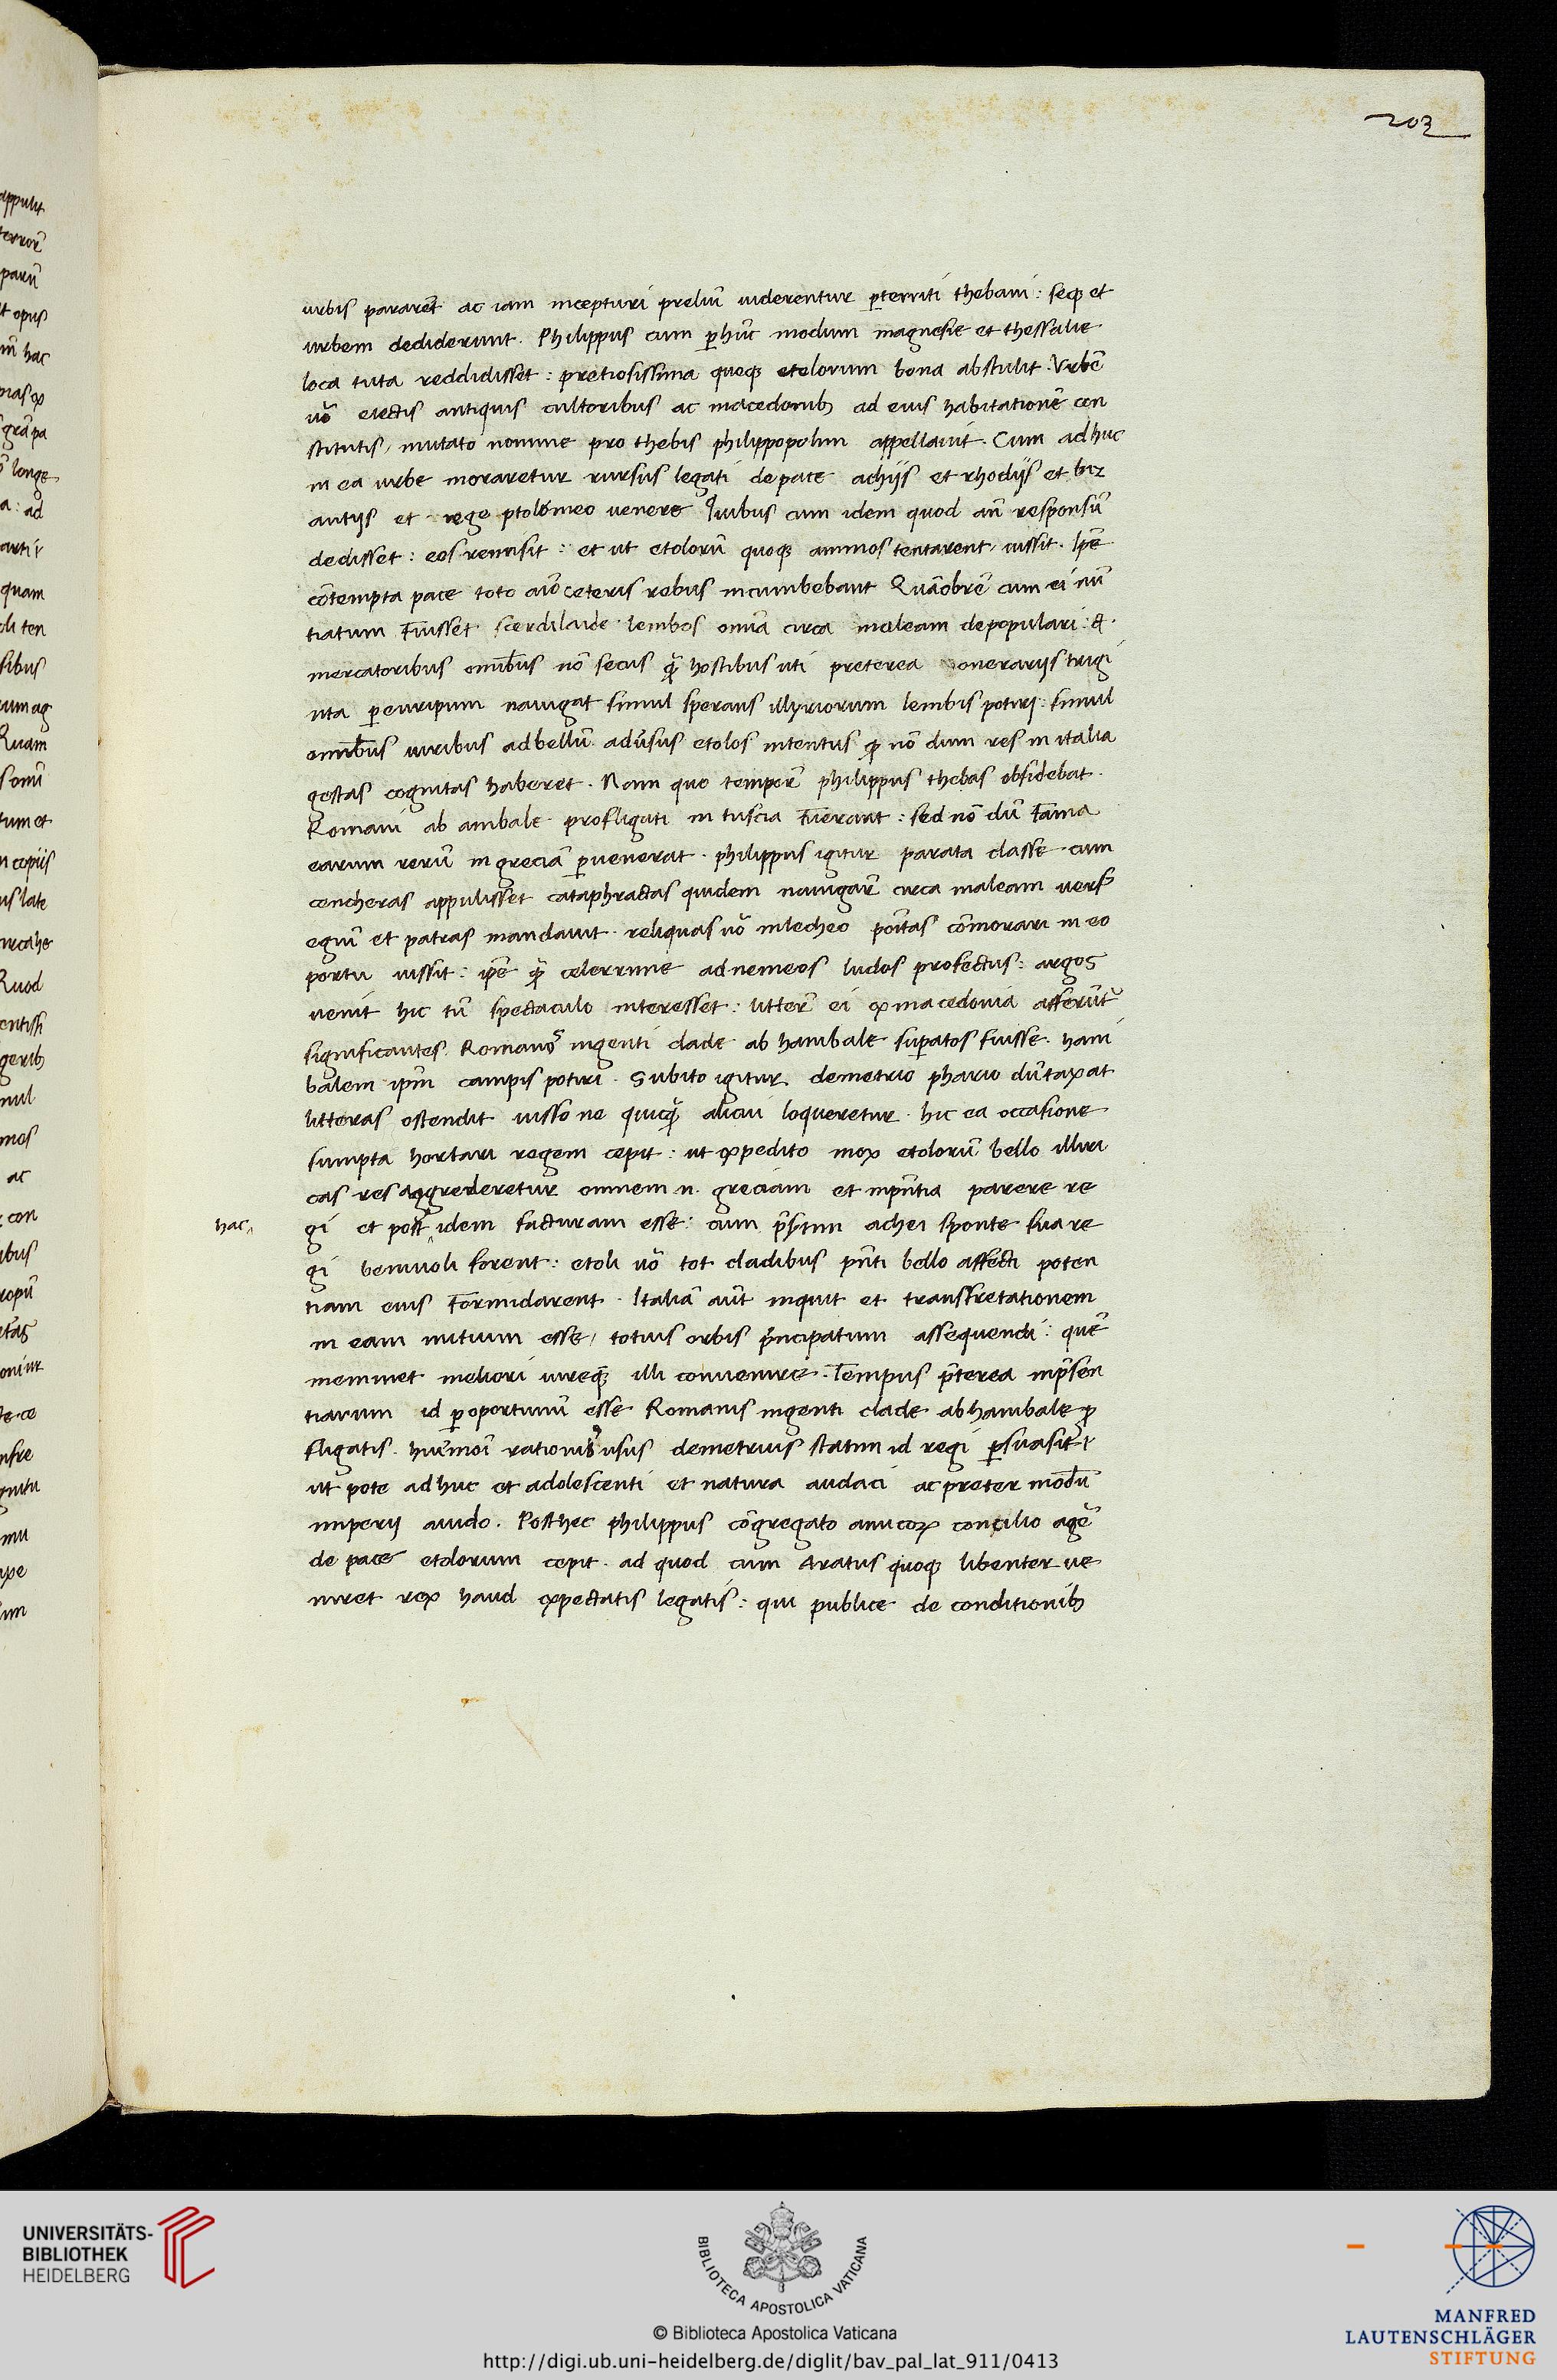 203
urbis pararēt ac iam incepturi preliū uiderentur ꝑterriti thebani : seqꝫ et
urbem dediderunt . Philippus cum ꝑ hūc modum magnesie et thessalie
loca tuta reddidisset : pretiosissima quoqꝫ etolorum bona abstulit . Vrbē
uō eiectis antiquis cultoribus ac macedonibꝫ ad eius habitationē con
stitutis / mutato nomine pro thebis philippopolim appellauit . Cum ad huc
in ea urbe moraretur rursus legati de pace achijs et rhodijs et biz
antijs et rege ptolomeo venere Quibus cum idem quod an̄ responsū
dedisset : eos remisit : et ut etolorū quoqꝫ animos tentarent / iussit . Ipē
cōtempta pace toto aīo ceteris rebus incumbebant Quāobrē cum ei nū
tiatum fuisset scerdilaide lembos omīa circa maleam depopulari : et
mercatoribus omībus nō secus ꝙ̄ hostibus uti preterea onerarijs trigi
nta ꝑ euripum nauigat simul sperans illyriorum lembis potiri : simul
omībus uiribus ad bellū aduersus etolos intentus ꝙ nō dum res in italia
gestas cognitas haberet . Nam quo temporē philippus thebas obsidebat .
Romani ab anibale profligati in tuscia fuerant : sed nō dū fama
earum rerū in greciā ꝑuenerat . philippus igitur parata classe cum
cencheras appulisset cataphractas quidem nauigarē circa maleam uersꝰ
egiū et patras mandauit . reliquas uō in lecheo positas cōmorari in eo
portu iussit : ipē ꝙ̄ celerrime ad nemeos ludos profectus : argos
uenit hic tū spectaculo interesset : litterē ei ex macedonia afferūtᷣ
significantes . Romanos ingenti clade ab hanibale suꝑatos fuisse . hani
balem ipm̄ campis potiri . Subito igitur demetrio phario dūtaxat
litteras ostendit iusso ne quicꝙ̄ alicui loqueretur . hic ea occasione
sumpta hortari regem cepit : ut expedito mox etolorū bello illiri
cas res aggrederetur omnem .n. greciam et inp̄ntia parere re
hac
gi et post idem facturam esse : cum p̄sertim achei sponte sua re
gi beniuoli forent : etoli uō tot cladibus p̄nti bello affecti poten
tiam eius formidarent . Italiā aūt inquit et transfretationem
in eam initium esse / totius orbis p̄ncipatum assequendi : quē
nemini et meliori iureqꝫ illi conuenire . Tempus p̄terea inp̄sen
tiarum id ꝑoportunū esse Romanis ingenti clade ab hanibale ꝓ
fligatis . huīmōi rationibꝰ usus demetrius statim id regi ꝑsuasit
ut pote ad huc et adolescenti et natura audaci ac preter modū
imperij auido . Post hec philippus cōgregato amicoꝝ concilio agē
de pace etolorum cepit . ad quod cum Aratus quoqꝫ libenter ue
niret rex haud expectatis legatis : qui publice de conditionibꝫ
UNIVERSITÄTS-
BIBLIOTHEK
HEIDELBERG
BIBLIOTECA APOSTOLICA VATICANA
© Biblioteca Apostolica Vaticana
http://digi.ub.uni-heidelberg.de/diglit/bav_pal_lat_911/0413
MANFRED
LAUTENSCHLÄGER
STIFTUNG